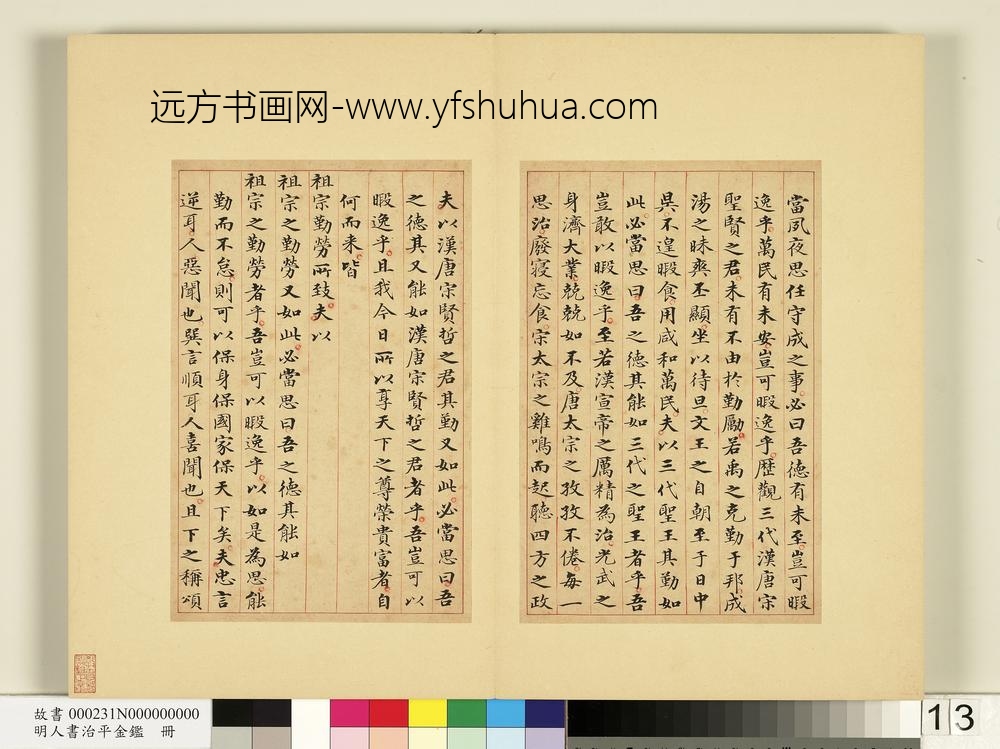 远方书画网-www.yfshuhua.com
當夙夜思任守成之事必曰吾德有未至豈可暇
逸乎萬民有未安豈可暇逸乎歷觀三代漢唐宗
聖賢之君未有不由於勤勵若禹之克勤于邦成
湯之昧爽丕顯坐以待旦文王之自朝至于日中
昃不遑暇食用咸和萬民夫以三代聖王其勤如
此必當思曰吾之德其能如三代之聖王者乎吾
豈敢以暇逸乎至若漢宣帝之厲精為治光武之
身濟大業兢兢如不及唐太宗之孜孜不倦每一
思治廢寢忘食宗太宗之雞鳴而起聽四方之政
夫以漢唐宗賢哲之君其勤又如此必當思曰吾
之德其又能如漢唐宗賢哲之君者乎吾豈可以
暇逸乎且我今日所以享天下之尊榮貴富者自
何而来皆
祖宗勤勞所致夫以
祖宗之勤勞又如此必當思曰吾之德其能如
祖宗之勤勞者乎吾豈可以暇逸乎以如是為思能
勤而不怠則可以保身保國家保天下矣夫忠言
逆耳人惡聞也巽言順耳人喜聞也且下之稱頌
故書 000231N000000000
明人書治平金鑑 冊
13